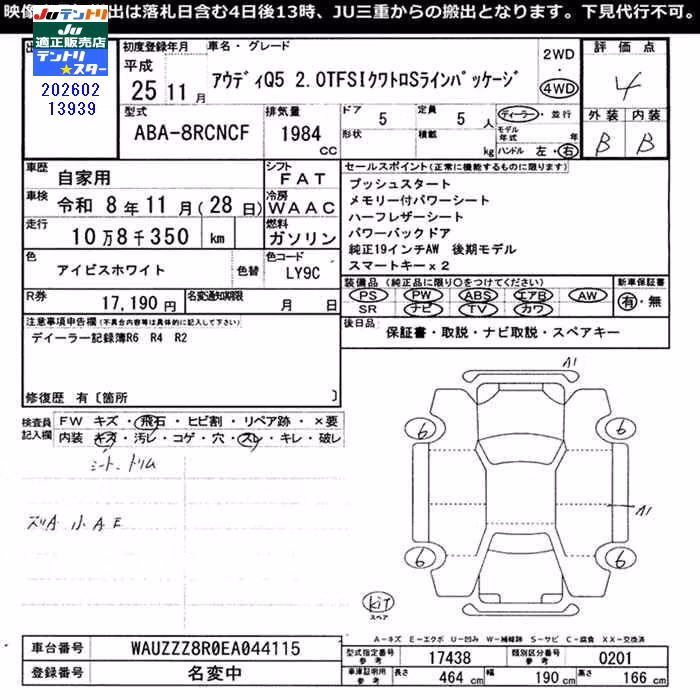 映像 出は落札日含む4日後13時、JU三重からの搬出となります。下見代行不可。
JUテントリ
JU
適正販売店
テントリ
★スター
202602
13939
初度登録年月
平成
25 11 月
車名・グレード
アウディQ5 2.0TFSIクワトロSラインパッケージ
2WD
・
4WD
評価点
4
外装 内装
B B
型式
ABA-8RCNCF
排気量
1984
cc
ドア
5
形状
定員
5 人
積載
kg
ディーラー・並行
モデル年式 年
ハンドル 左・右
車歴
自家用
シフト
FAT
車検
令和 8年11月(28日)
冷房
WAAC
走行
10万8千350 km
燃料
ガソリン
色
アイビスホワイト
色替
色コード
LY9C
R券
17,190 円
名変通知期限
月 日
セールスポイント(正常に機能するものに限ります)
プッシュスタート
メモリー付パワーシート
ハーフレザーシート
パワーバックドア
純正19インチAW 後期モデル
スマートキーx2
装備品 (純正品に限り○をつけてください)
PS PW ABS エアB AW
SR ナビ TV カワ
新車保証書
有・無
後日品
保証書・取説・ナビ取説・スペアキー
注意事項申告欄(不具合内容等は具体的に記入して下さい)
ディーラー記録簿R6 R4 R2
修復歴 有〔箇所 〕
検査員
記入欄
FW キズ・飛石・ヒビ割・リペア跡・×要
内装 キズ・汚レ・コゲ・穴・スレ・キレ・破レ
シート、トリム
ズリA 小AE
A1
6
6
A1
6
6
Kit
スペア
A-キズ E-エクボ U-凹み W-補修跡 S-サビ C-腐食 XX-交換済
車台番号
WAUZZZ8R0EA044115
登録番号
名変中
型式指定番号
参考
17438
類別区分番号
参考
0201
車庫証明用
参考
長さ
464 cm
幅
190 cm
高さ
166 cm